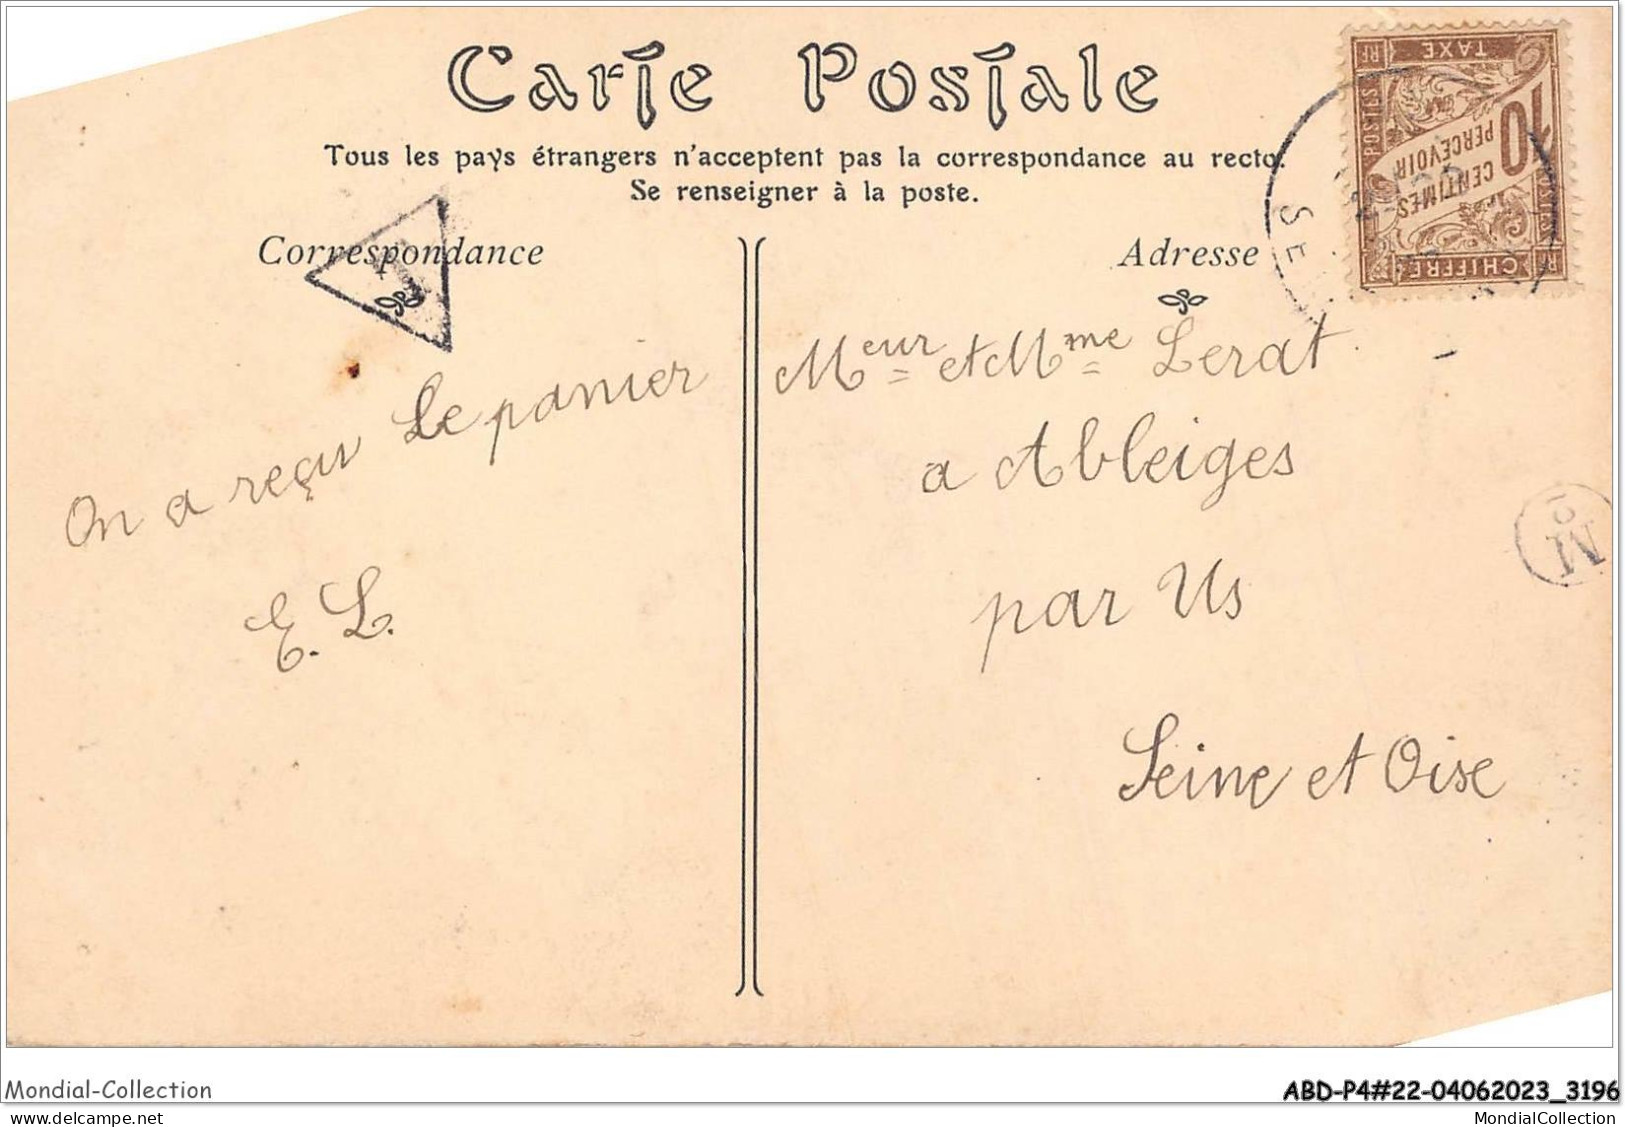 Carte Postale
Tous les pays étrangers n'acceptent pas la correspondance au recto.
Se renseigner à la poste.
Correspondance
Adresse
POSTES RF
TAXE
10
CENTIMES
PERCEVOIR
CHIFFRE
SE
T
On a reçu Le panier
E. L.
Meur et Mme Lerat
a Ableiges
par Us
Seine et Oise
M
5
Mondial-Collection
ABD-P4#22-04062023_3196
www.delcampe.net
MondialCollection